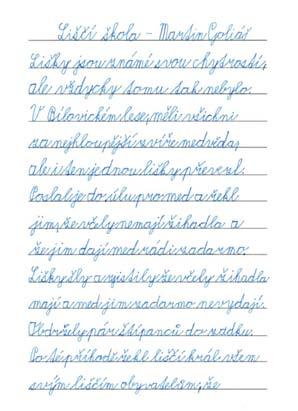 Liščí škola - Martin Goliáš
Lišky jsou známé svou chytrostí,
ale vždycky tomu tak nebylo.
V Bílovickém lese, měli všichni
za nejhloupější zvíře medvěda,
ale i ten jednou lišky převezl.
Poslal je do úlu pro med a řekl
jim, že včely nemají žihadla a
že jim dají med rádi zadarmo.
Lišky šly a zjistily že včely žihadla
mají a med jim zadarmo nevydají.
Obdržely pár štípanců do zadku.
Po té příhodě řekl liščí král všem
svým liščím obyvatelům, že